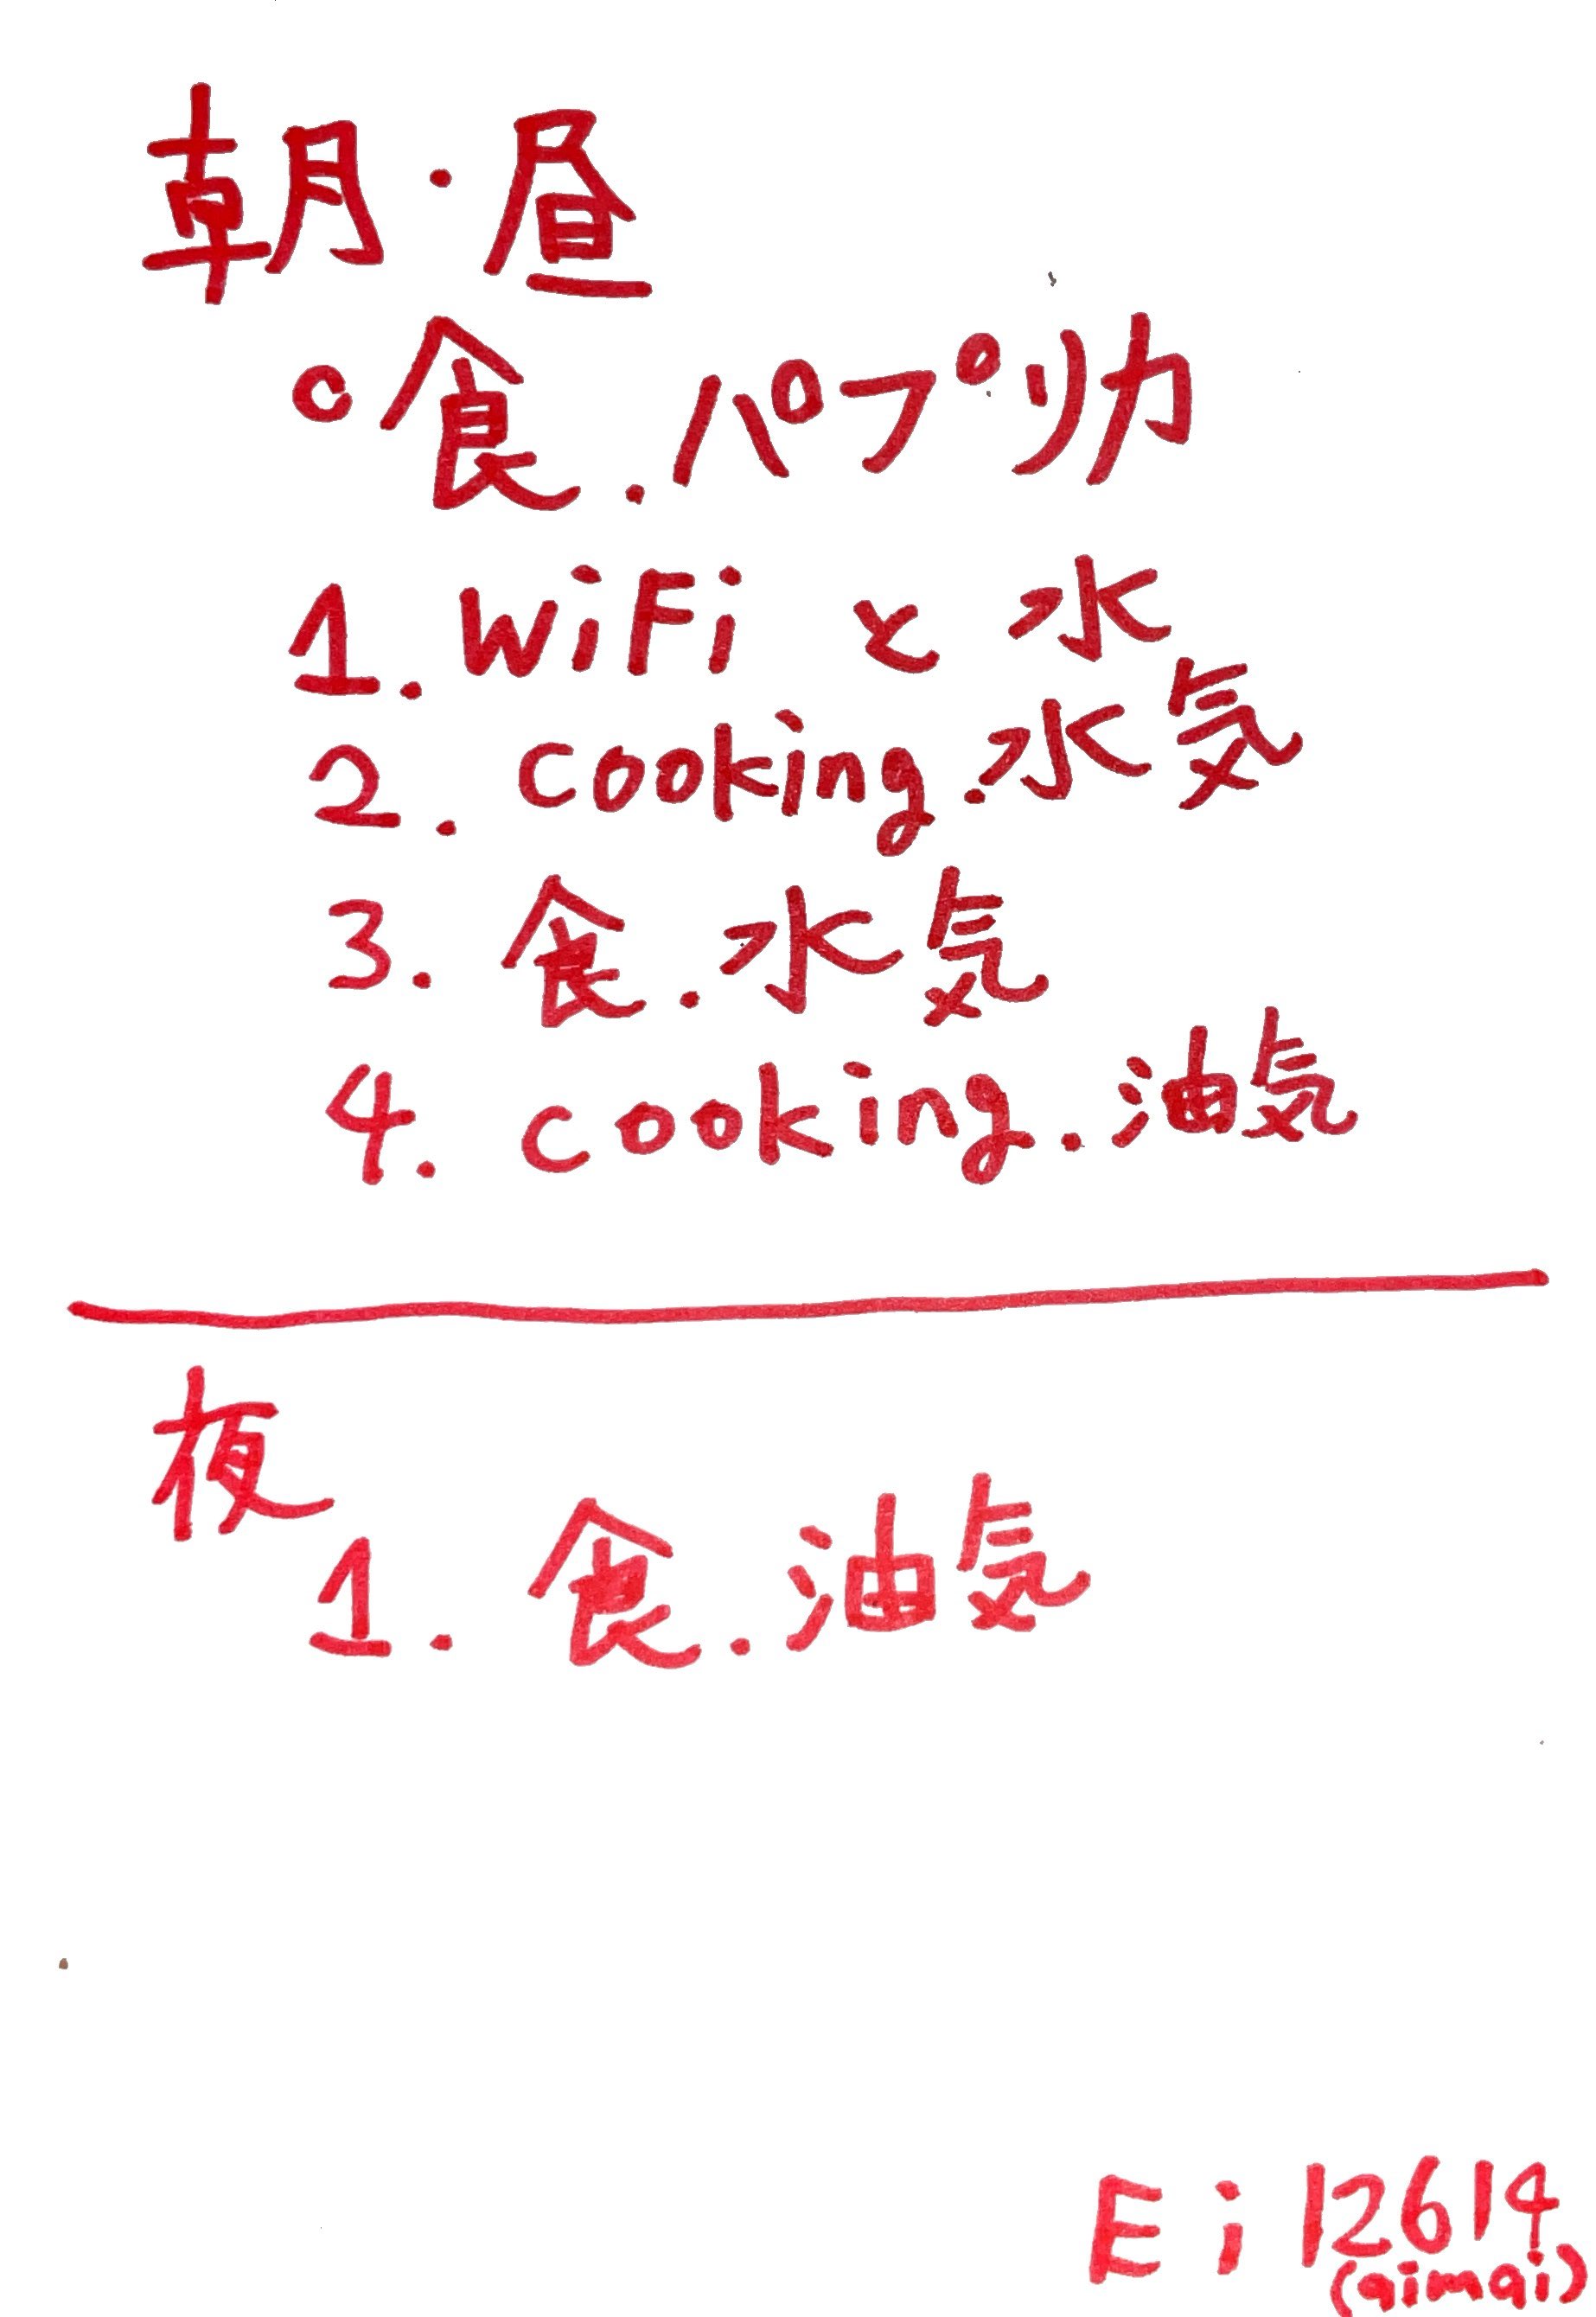 朝・昼
○食.パプリカ
1. WiFi と 水
2. cooking.水気
3. 食.水気
4. cooking.油気
夜
1. 食.油気
Ei 12614
(aimai)